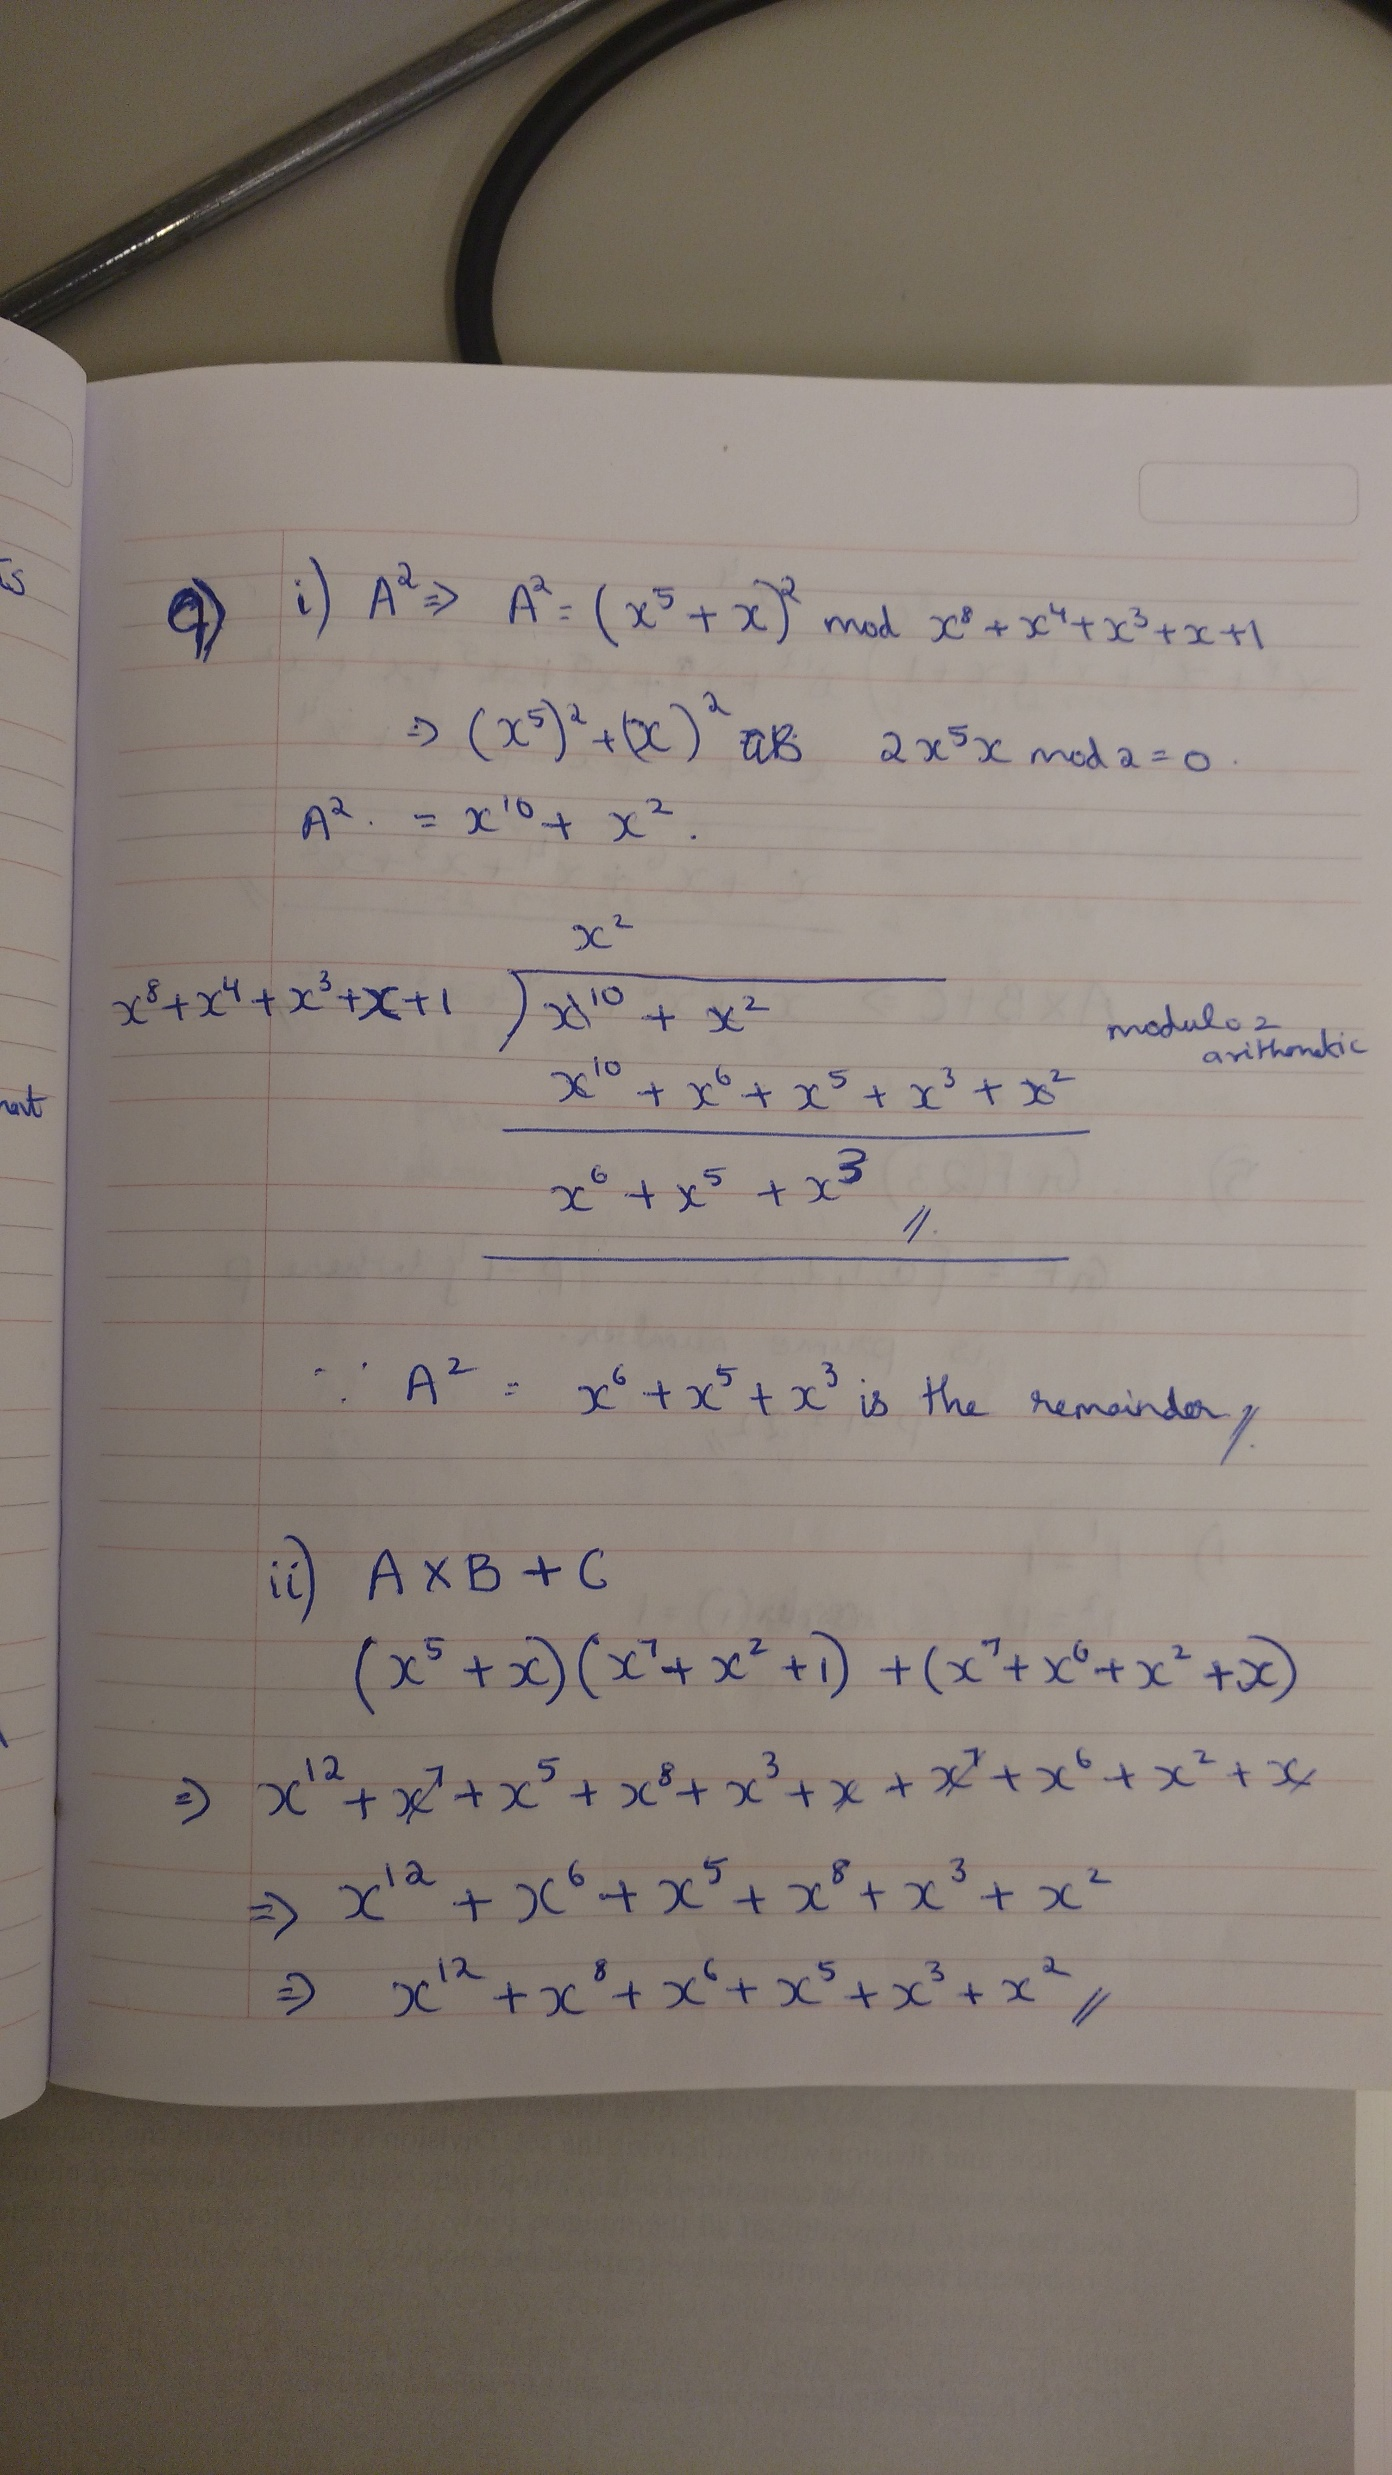 9) i) A² ⇒ A² = (x⁵ + x)² mod x⁸ + x⁴ + x³ + x + 1
⇒ (x⁵)² + (x)² 2x⁵x mod 2 = 0.
A². = x¹⁰ + x².
x²
x⁸ + x⁴ + x³ + x + 1 ) x¹⁰ + x²
modulo 2
arithmetic
x¹⁰ + x⁶ + x⁵ + x³ + x²
x⁶ + x⁵ + x³ //.
∵ A² = x⁶ + x⁵ + x³ is the remainder //.
ii) A X B + C
(x⁵ + x)(x⁷ + x² + 1) + (x⁷ + x⁶ + x² + x)
⇒ x¹² + x⁷ + x⁵ + x⁸ + x³ + x + x⁷ + x⁶ + x² + x
⇒ x¹² + x⁶ + x⁵ + x⁸ + x³ + x²
⇒ x¹² + x⁸ + x⁶ + x⁵ + x³ + x² //